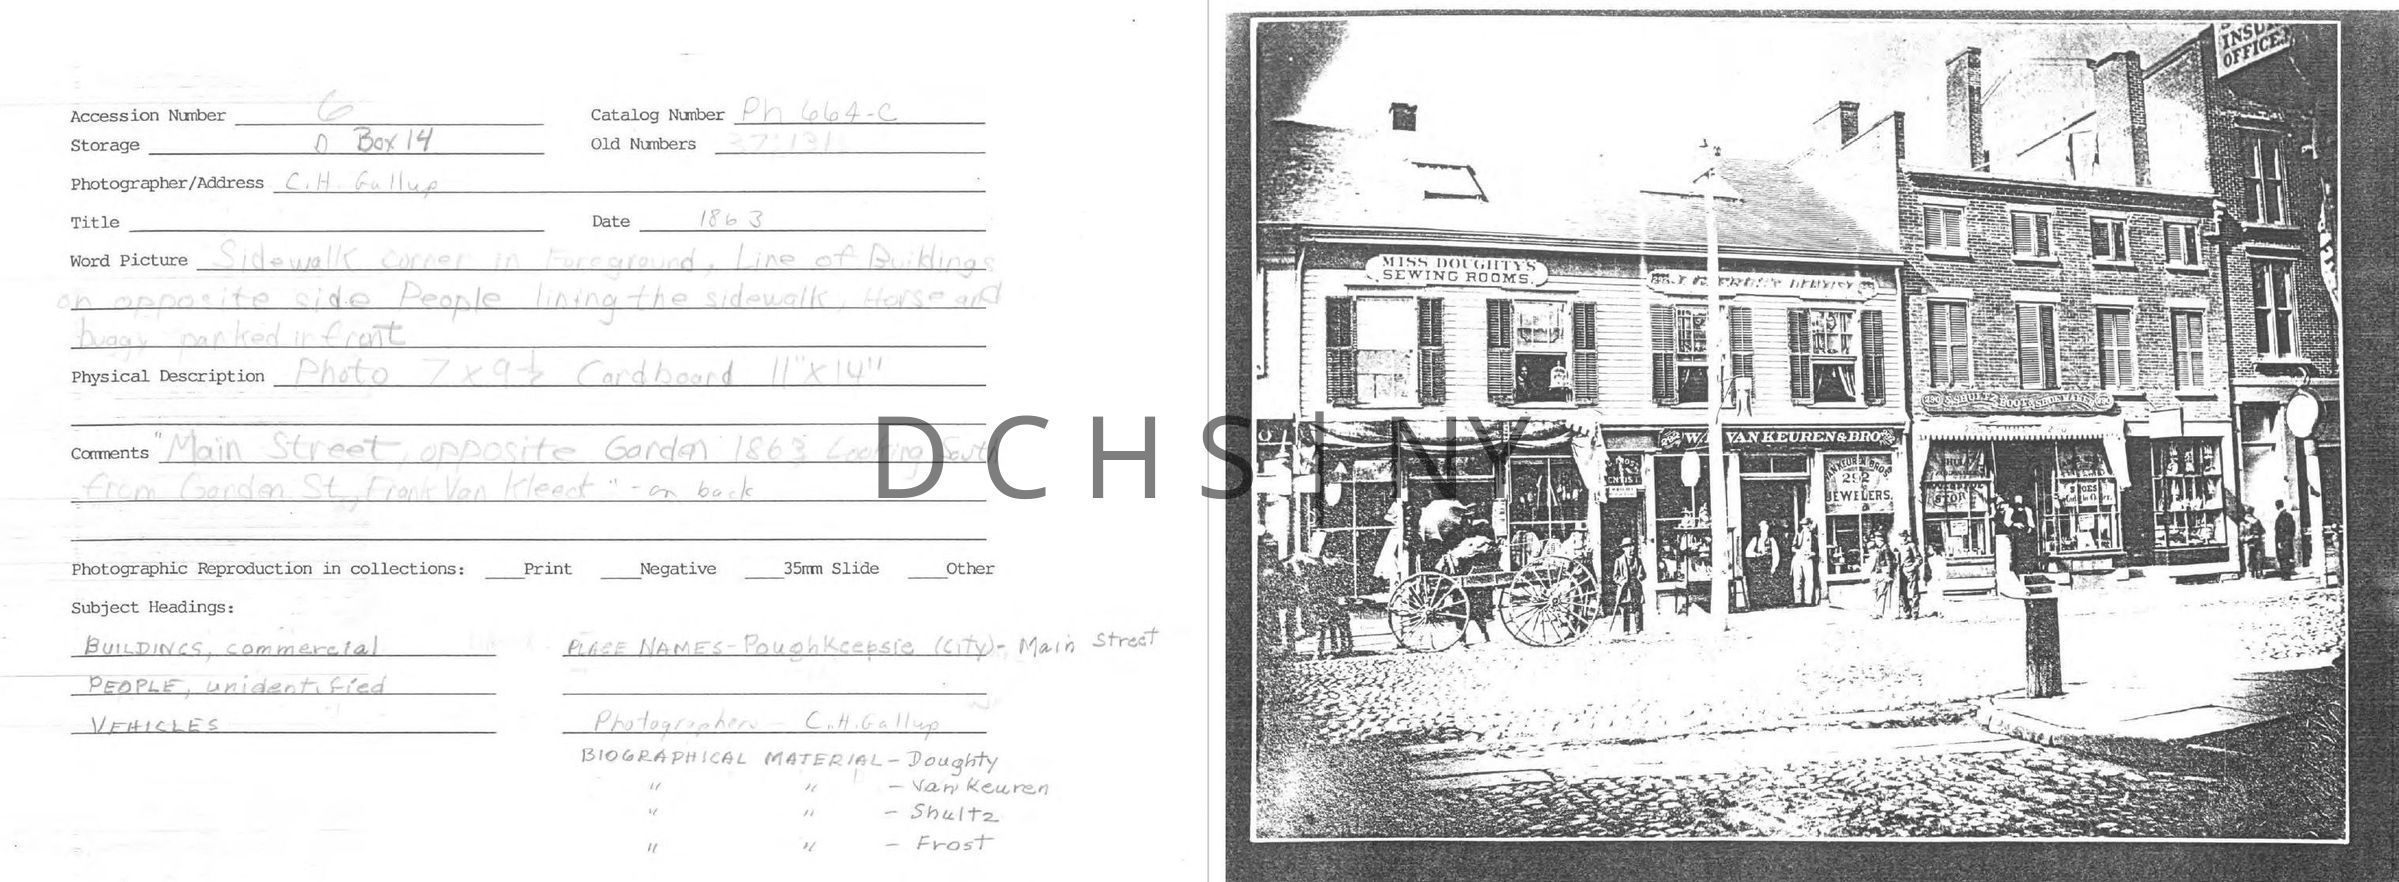 Accession Number 6
Catalog Number Ph 664-C
Storage D Box 14
Old Numbers
Photographer/Address C.H. Gallup
Title
Date 1863
Word Picture Sidewalk corner in Foreground, Line of Buildings
on opposite side People lining the sidewalk, Horse and
buggy parked in front
Physical Description Photo 7 x 9½ Cardboard 11" x 14"
Comments "Main Street, opposite Garden 1863 Looking South
from Garden St., Frank Van Kleeck" - on back
Photographic Reproduction in collections: Print Negative 35mm Slide Other
Subject Headings:
BUILDINGS, commercial
PLACE NAMES - Poughkeepsie (City) - Main Street
PEOPLE, unidentified
VEHICLES
Photographers - C.H. Gallup
BIOGRAPHICAL MATERIAL - Doughty
" " - Van Keuren
" " - Shultz
" " - Frost
DCHS | NY
INSU
OFFICE.
MISS DOUGHTY'S
SEWING ROOMS.
290 S. SHULTZ BOOT & SHOE MAKER 290
292 W. VAN KEUREN & BRO. 292
VAN KEUREN BROS.
292
JEWELERS.
STORE
SHOES